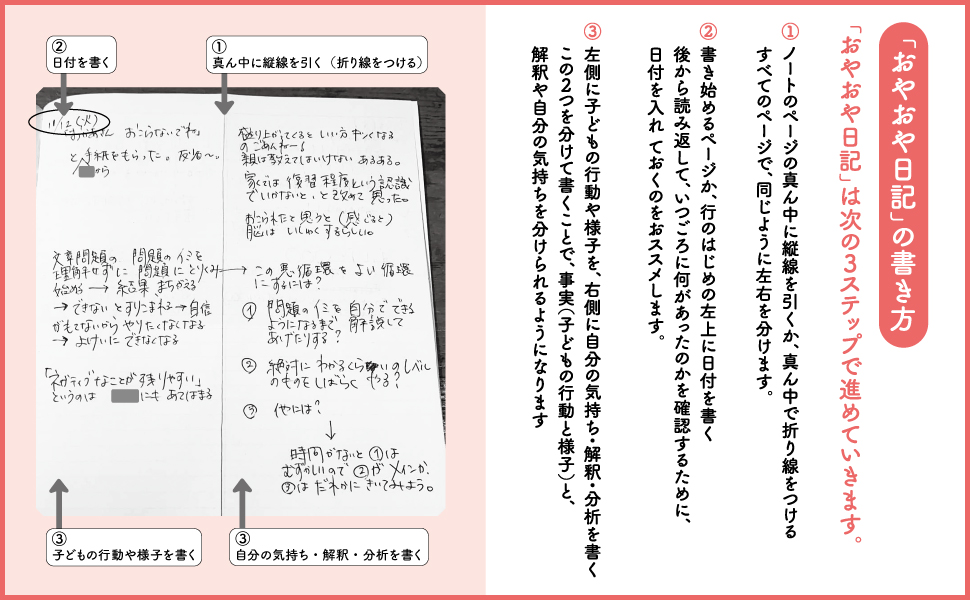 「おやおや日記」の書き方
「おやおや日記」は次の3ステップで進めていきます。
①
ノートのページの真ん中に縦線を引くか、真ん中で折り線をつける
すべてのページで、同じように左右を分けます。
②
書き始めるページか、行のはじめの左上に日付を書く
後から読み返して、いつごろに何があったのかを確認するために、
日付を入れておくのをおススメします。
③
左側に子どもの行動や様子を、右側に自分の気持ち・解釈・分析を書く
この2つを分けて書くことで、事実(子どもの行動と様子)と、
解釈や自分の気持ちを分けられるようになります
②
日付を書く
①
真ん中に縦線を引く(折り線をつける)
11/12(火)
おかあさん おこらないでね
と手紙をもらった。反省〜。
から
文章問題の 問題のイミを
理解せずに 問題にとりくみ→
始める → 結果 まちがえる
→できない とすりこまれる→自信
がもてないから やりたくなくなる
→ よけいに できなくなる
「ネガティブなことが残りやすい」
というのは にも あてはまる
盛り上がってくると いい方 キツくなる
の ごめんねー!
親は教えてはいけない あるある。
家では 復習 程度という認識
でいかないと、と改めて 思った。
おこられたと 思うと(感じると)
脳は いしゅくするらしい。
この 悪循環 を よい 循環
にするには?
① 問題の イミ を 自分で できる
ようになるまで 解説して
あげたりする?
② 絶対に わかるくらいのレベル
のものを しばらく やる?
③ 他には?
↓
時間がないと ①は
むずかしいので ②が メインか、
③は だれかに きいてみよう。
③
子どもの行動や様子を書く
③
自分の気持ち・解釈・分析を書く